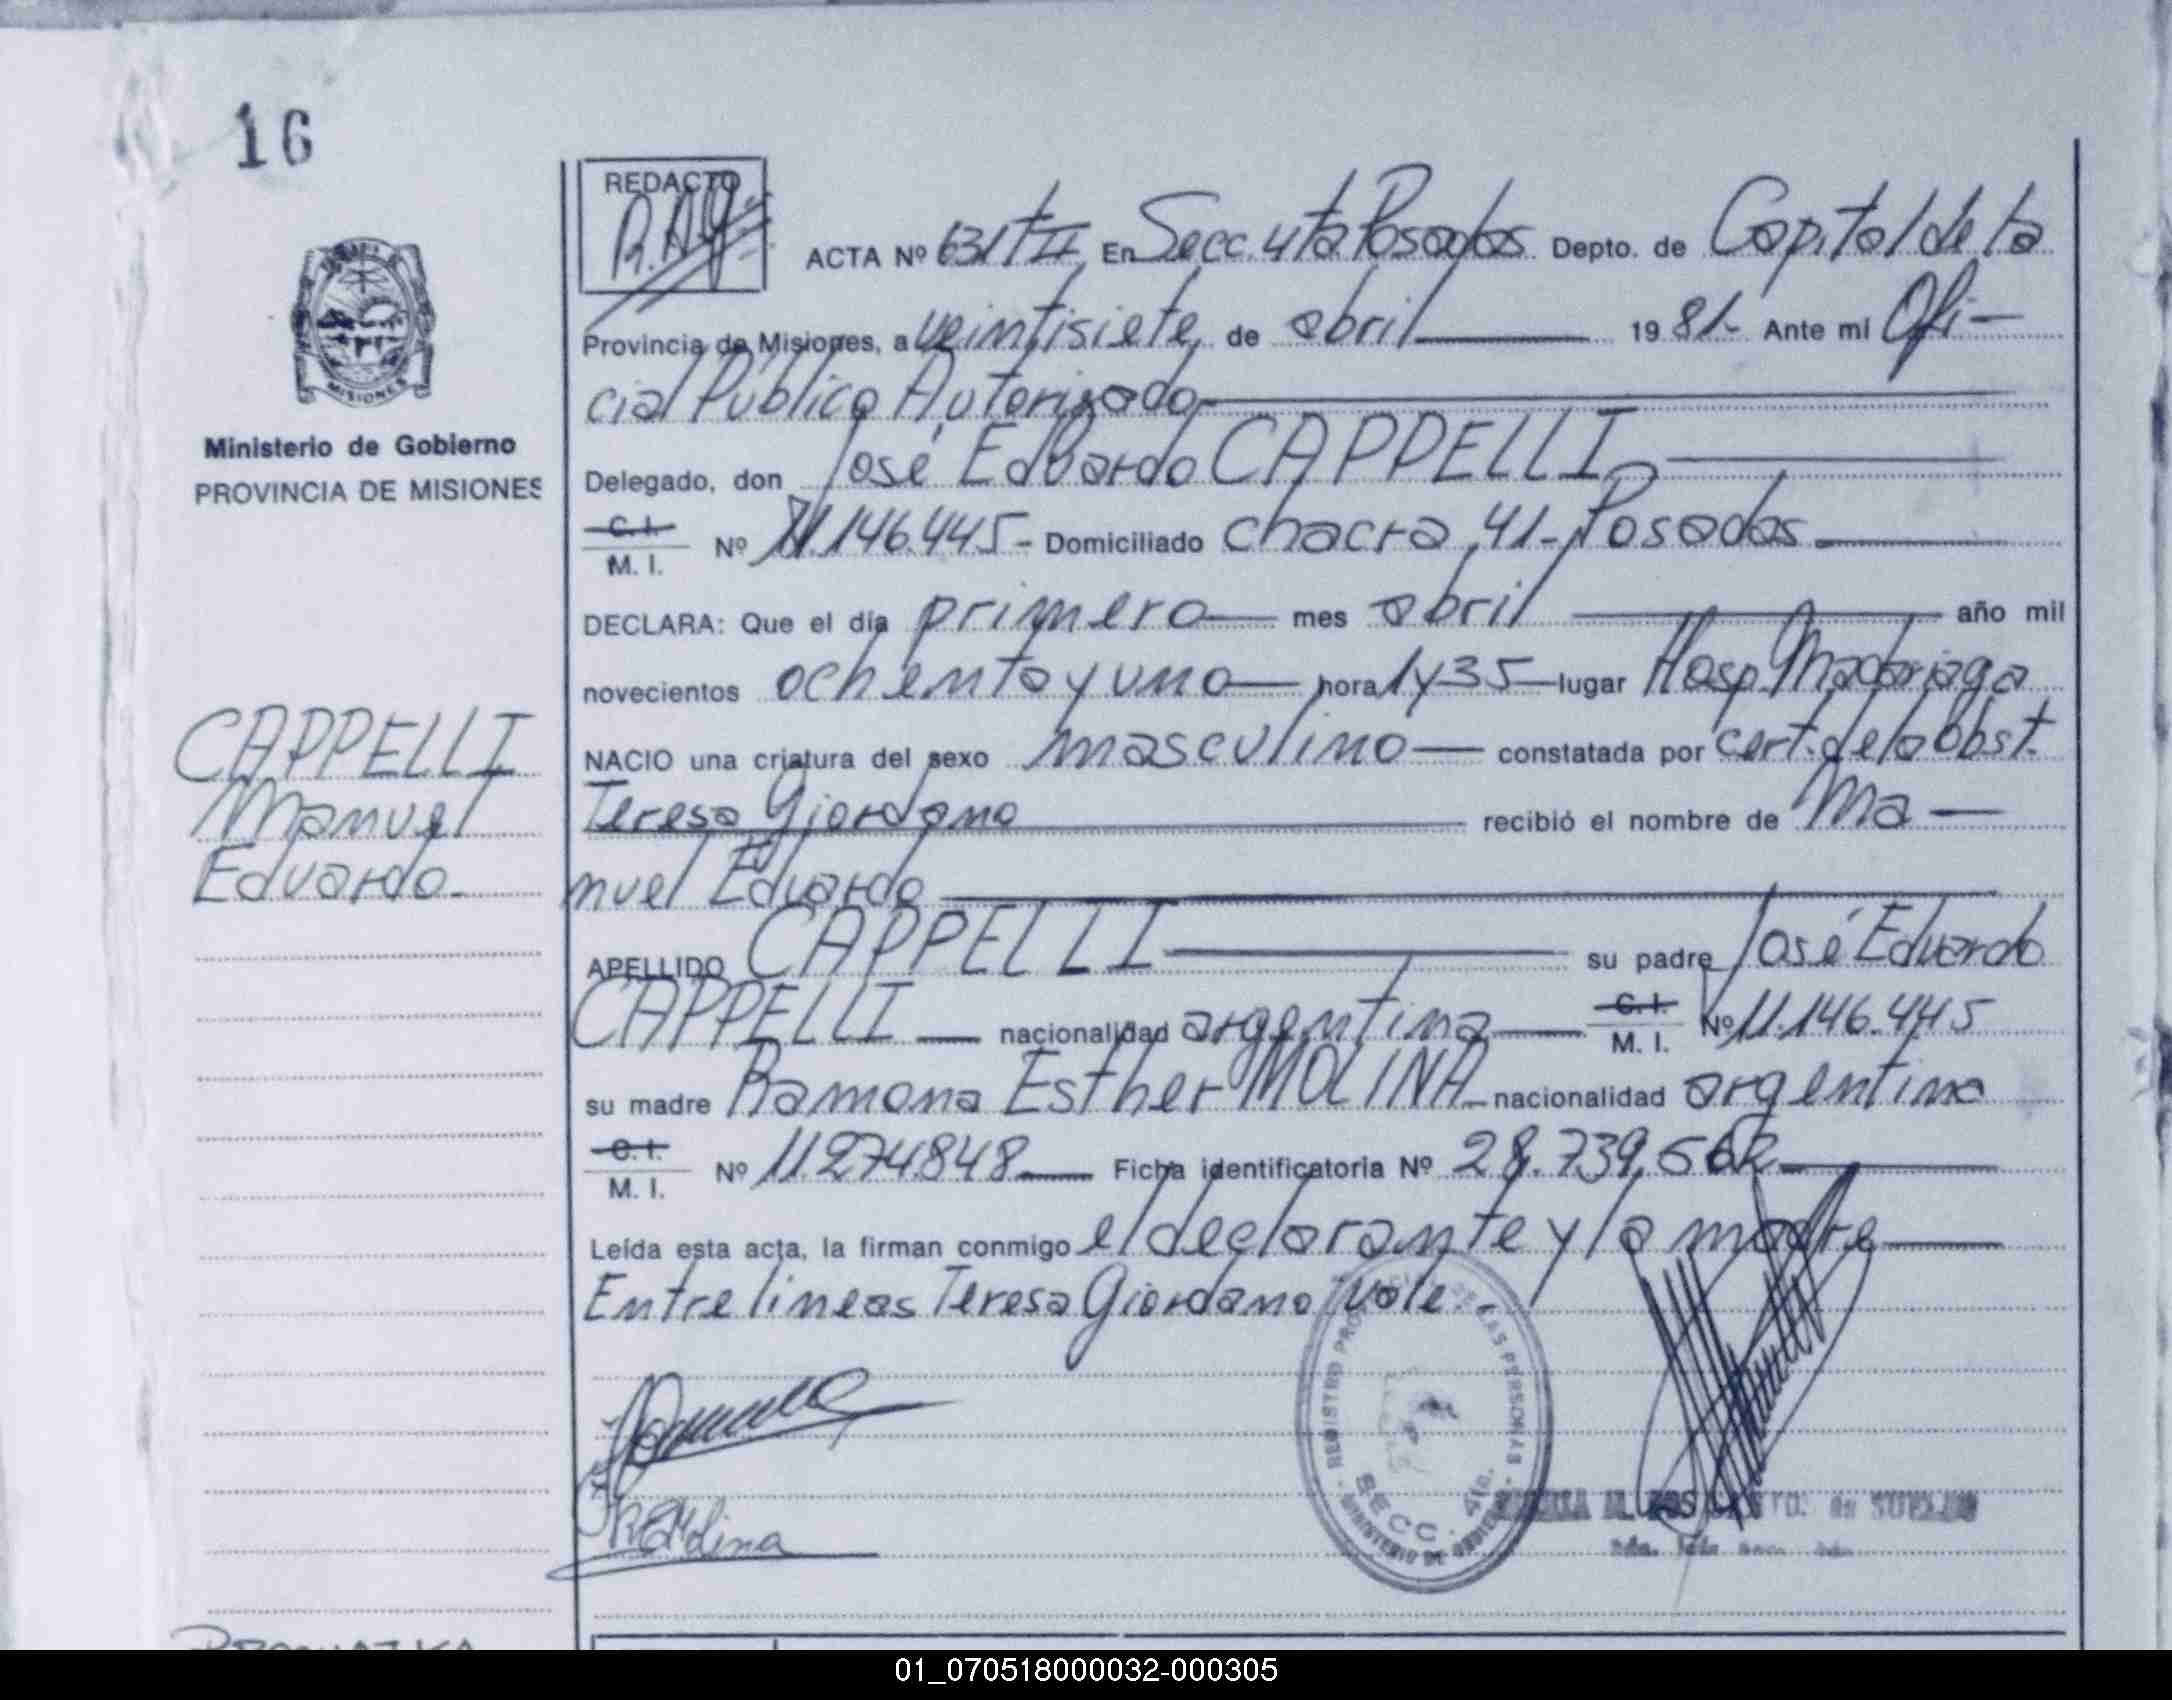 16
REDACTO
R.A.G.
ACTA Nº 631 T II En Secc. 4ta Posadas Depto. de Capital de la
Provincia de Misiones, a veintisiete de abril 1981.- Ante mí Ofi-
cial Público Autorizado
MISIONES
Ministerio de Gobierno
PROVINCIA DE MISIONES
Delegado, don José Eduardo CAPPELLI
C. I.
M. I. Nº 11.146.445- Domiciliado chacra 41- Posadas
DECLARA: Que el día primero mes abril año mil
novecientos ochenta y uno hora 1 y 35 lugar Hosp. Madariaga
CAPPELLI
Manuel
Eduardo.
NACIO una criatura del sexo masculino constatada por cert. de la Obst.
Teresa Giordano recibió el nombre de Ma-
nuel Eduardo
APELLIDO CAPPELLI su padre José Eduardo
CAPPELLI nacionalidad argentina C. I.
M. I. Nº 11.146.445
su madre Ramona Esther MOLINA nacionalidad argentina
C. I.
M. I. Nº 11.274.848 Ficha identificatoria Nº 28.739.562
Leída esta acta, la firman conmigo el declarante y la madre
Entre lineas Teresa Giordano vale.
REGISTRO PROVINCIAL DE LAS PERSONAS
SECC. 4ta.
MINISTERIO DE GOBIERNO
Molina
01_070518000032-000305